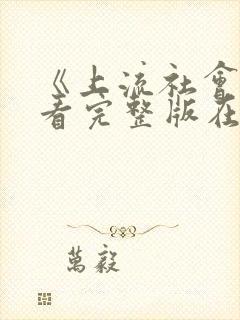 《上流社會
看完整版在
萬毅